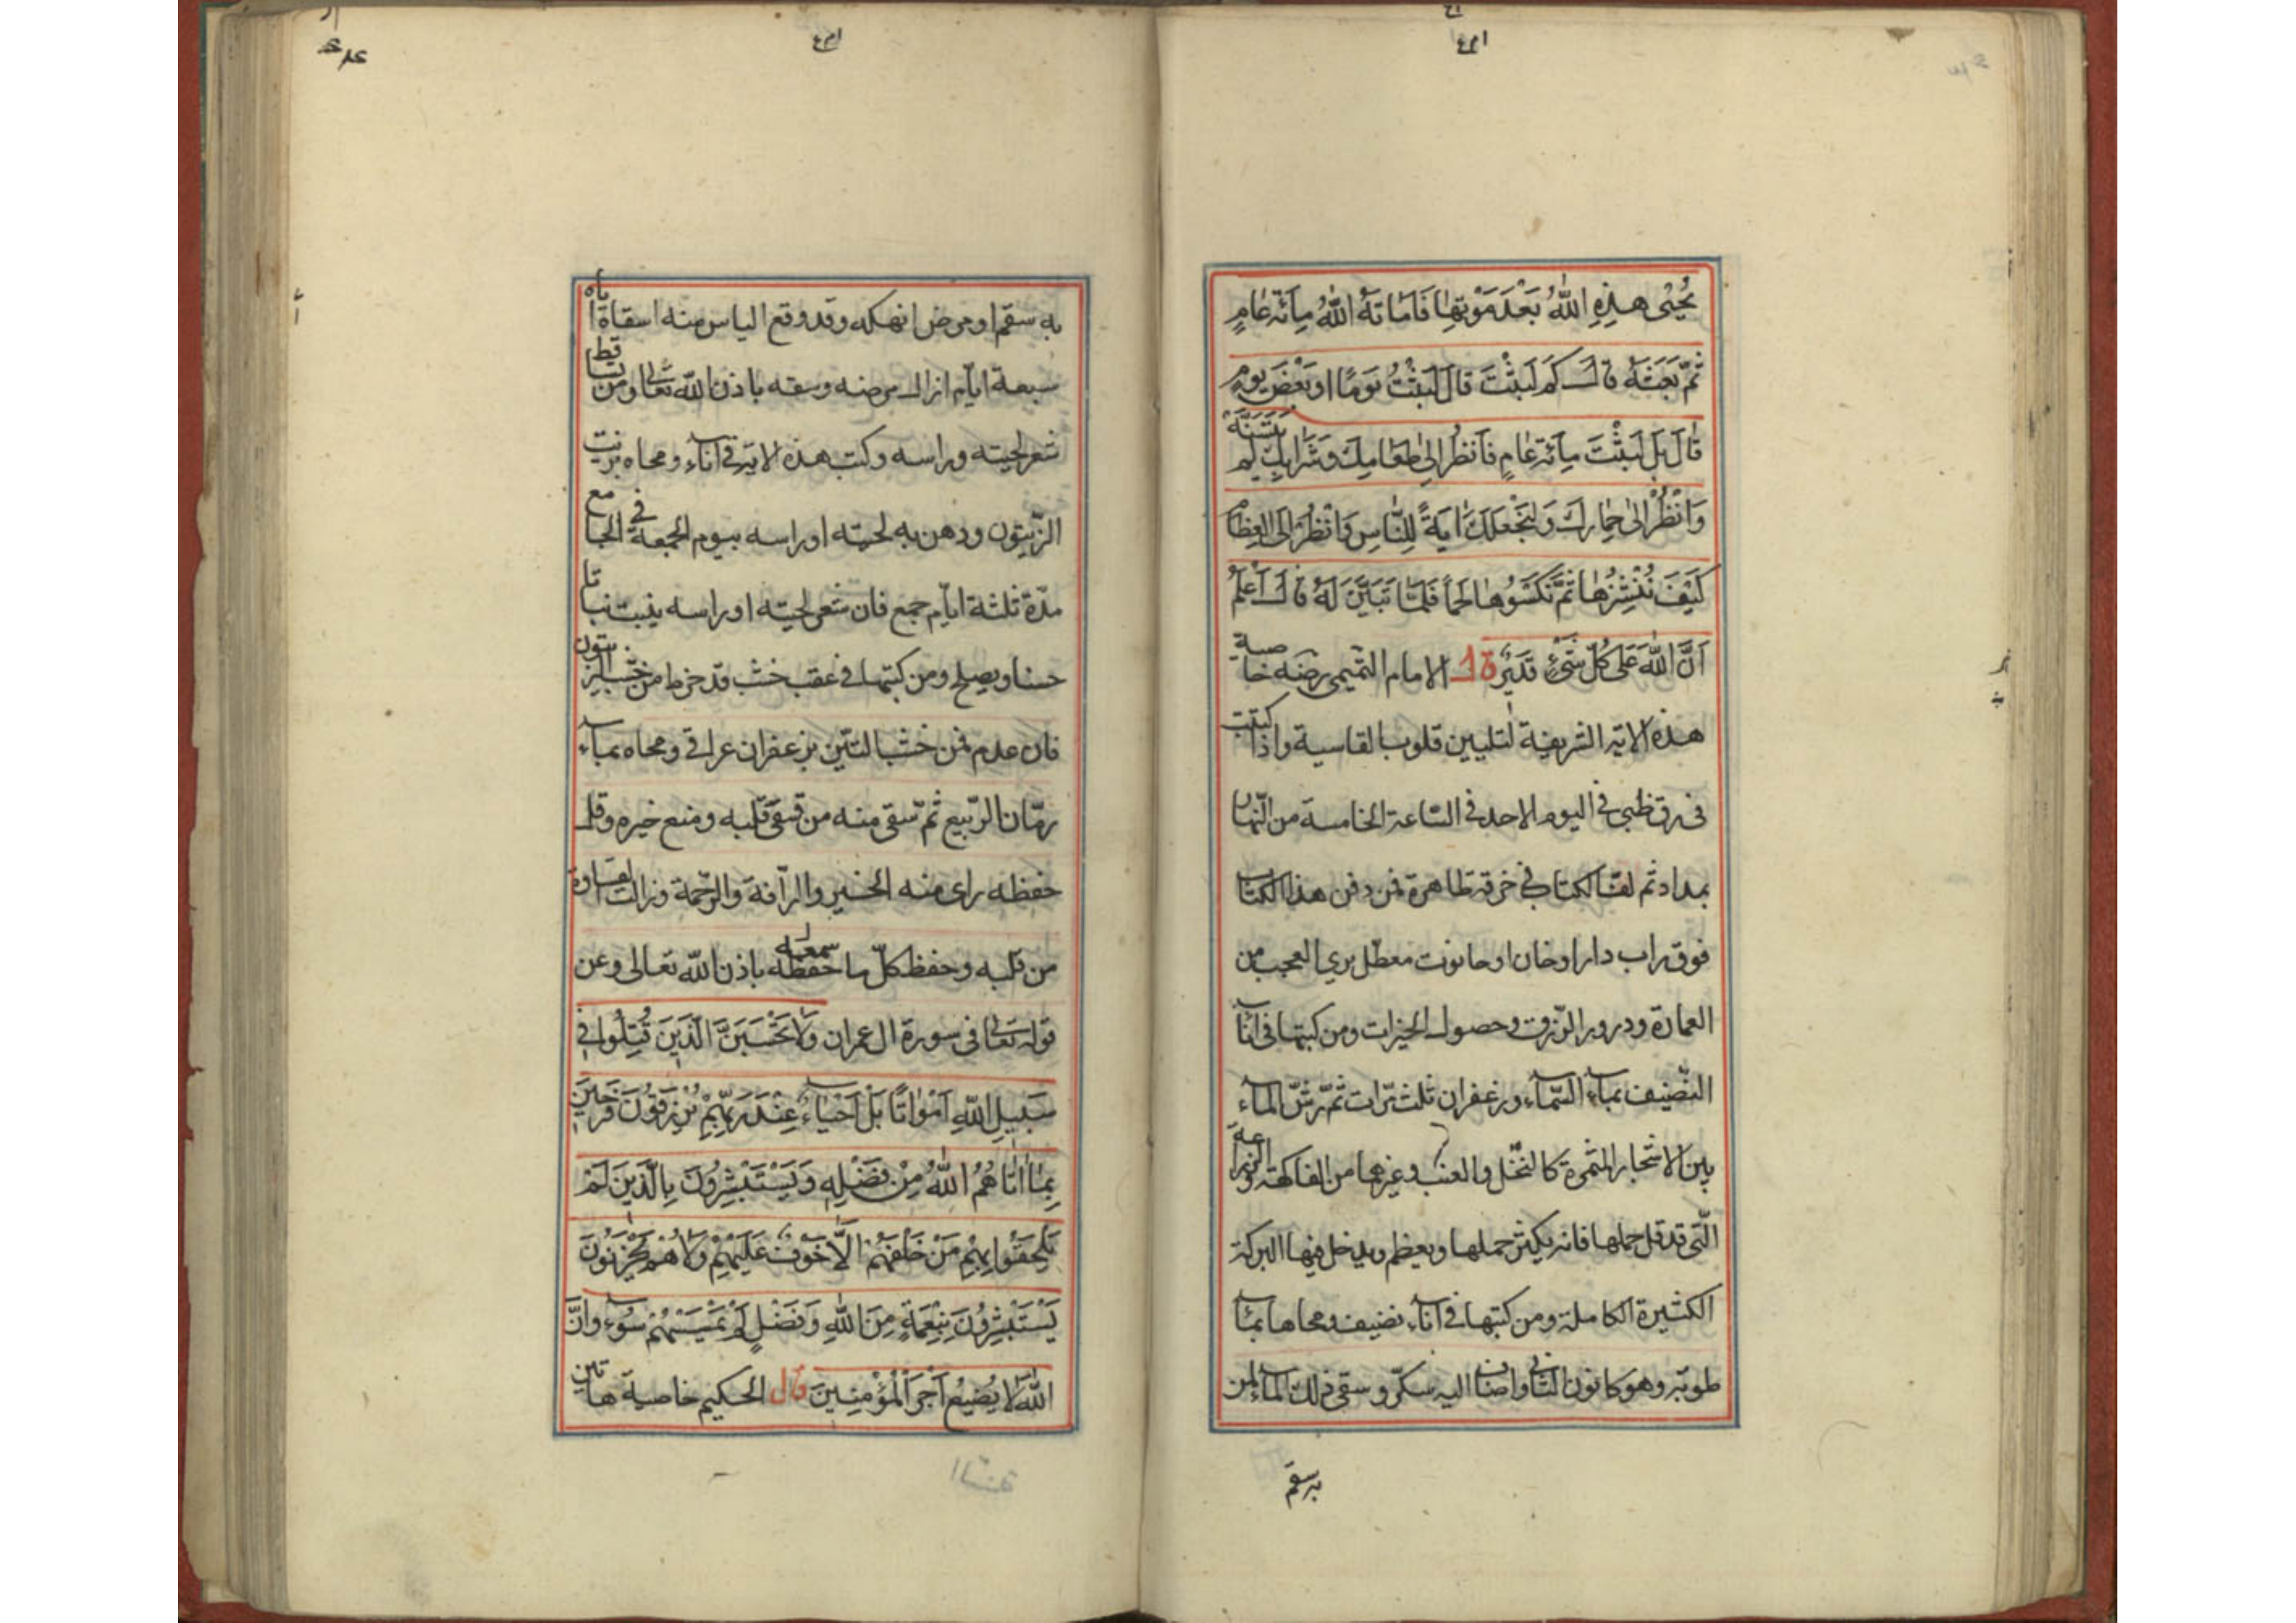 يُحْيِى هٰذِهِ اللّٰهُ بَعْدَ مَوْتِهَا فَاَمَاتَهُ اللّٰهُ مِائَةَ عَامٍ
ثُمَّ بَعَثَهُ قَالَ كَمْ لَبِثْتَ قَالَ لَبِثْتُ يَوْمًا اَوْ بَعْضَ يَوْمٍ
قَالَ بَلْ لَبِثْتَ مِائَةَ عَامٍ فَانْظُرْ اِلٰى طَعَامِكَ وَشَرَابِكَ لَمْ يَتَسَنَّهْ
وَانْظُرْ اِلٰى حِمَارِكَ وَلِنَجْعَلَكَ اٰيَةً لِلنَّاسِ وَانْظُرْ اِلَى الْعِظَامِ
كَيْفَ نُنْشِزُهَا ثُمَّ نَكْسُوْهَا لَحْمًا فَلَمَّا تَبَيَّنَ لَهُ قَالَ اَعْلَمُ
اَنَّ اللّٰهَ عَلٰى كُلِّ شَىْءٍ قَدِيْرٌ قال الامام التميمى رضه خاصية
هذه الاية الشريفة لتليين قلوب القاسية واذا كتبت
فى رق ظبى فى اليوم الاحد فى الساعة الخامسة من النهار
بمداد ثم لف الكتاب فى خرقة طاهرة فمن دفن هذا الكتاب
فوق باب دار او خان او حانوت معطل يرى العجب من
العمارة ودرور الرزق وحصول الخيرات ومن كتبها فى اناء
النضيف بماء السماء وزعفران ثلث مرات ثم رش الماء
بين الاشجار المثمرة كالنخل والعنب وغيرهما من الفاكهة والزراعة
التى قد قل حملها فانه يكثر حملها ويعظم ويدخل فيها البركة
الكثيرة الكاملة ومن كتبها فى اناء نضيف ومحاها بماء
طوبة وهو كانون الثانى واضاف اليه سكر وسقى ذلك الماء لمن
به سقم
به سقم او مرض انهكه وقد وقع الياس منه اسقاه اياه
سبعة ايام ازال مرضه وسقمه باذن الله تعالى ومن تساقط
شعر لحيته وراسه وكتب هذه الاية فى اناء ومحاه بزيت
الزيتون ودهن به لحيته او راسه بيوم الجمعة فى الجامع
مدة ثلثة ايام جمع فان شعر لحيته او راسه ينبت نباتا
حسنا ويصلح ومن كتبها فى عقب خشب قد خرط من خشب الزيتون
فان عدم فمن خشب التين بزعفران عراقى ومحاه بماء
رمان الربيع ثم سقى منه من قسى قلبه ومنع خيره وقل
حفظه راى منه الخير والرافة والرحمة وزالت القساوة
من قلبه وحفظ كل ما سمعه حفظه باذن الله تعالى وعن
قوله تعالى فى سورة ال عمران وَلَا تَحْسَبَنَّ الَّذِيْنَ قُتِلُوْا فِى
سَبِيْلِ اللّٰهِ اَمْوَاتًا بَلْ اَحْيَاءٌ عِنْدَ رَبِّهِمْ يُرْزَقُوْنَ فَرِحِيْنَ
بِمَا اٰتَاهُمُ اللّٰهُ مِنْ فَضْلِهِ وَيَسْتَبْشِرُوْنَ بِالَّذِيْنَ لَمْ
يَلْحَقُوْا بِهِمْ مِنْ خَلْفِهِمْ اَلَّا خَوْفٌ عَلَيْهِمْ وَلَا هُمْ يَحْزَنُوْنَ
يَسْتَبْشِرُوْنَ بِنِعْمَةٍ مِنَ اللّٰهِ وَفَضْلٍ لَمْ يَمْسَسْهُمْ سُوْءٌ وَاَنَّ
اللّٰهَ لَا يُضِيْعُ اَجْرَ الْمُؤْمِنِيْنَ قال الحكيم خاصية هاتين